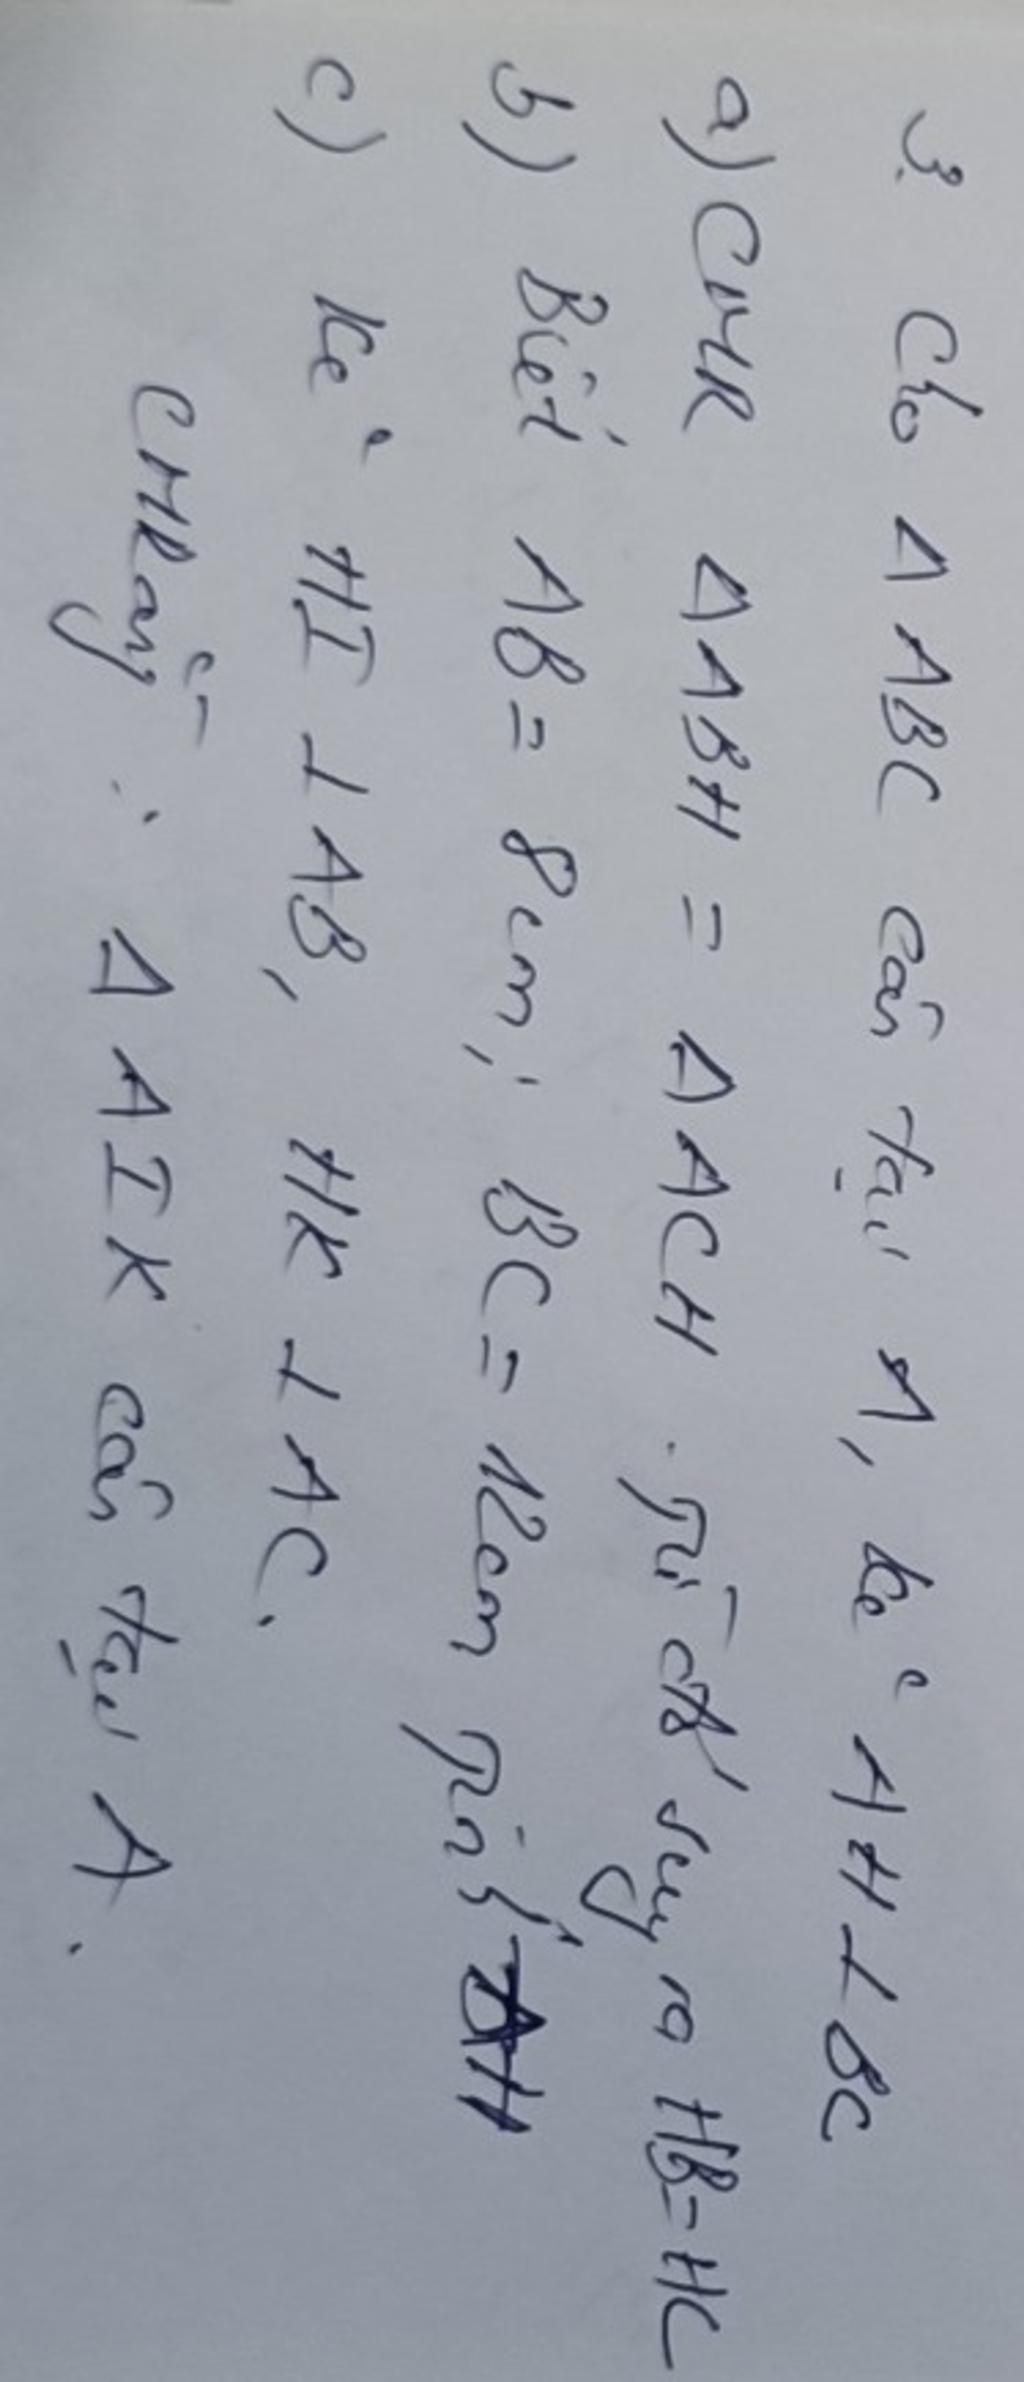 3. Cho Δ ABC cân tại A, kẻ AH ⊥ BC
a) CMR Δ ABH = Δ ACH. Từ đó suy ra HB = HC
b) Biết AB = 8cm; BC = 12cm Tính AH
c) Kẻ HI ⊥ AB, HK ⊥ AC.
CMRằng: Δ AIK cân tại A.